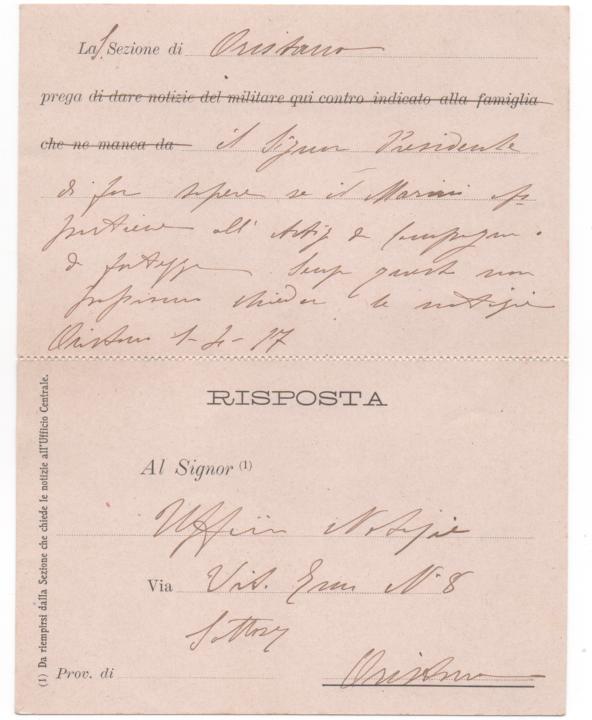 La S. Sezione di Oristano
prega di dare notizie del militare qui contro indicato alla famiglia
che ne manca da il Signor Presidente
di far sapere se il Marini ap
partiene all' Artig da Campagna o
di fortezza Senza questo non
possiamo chieder le notizie
Oristano 1-2-17
RISPOSTA
Al Signor (1)
Ufficio Notizie
Via Vit. Em N° 8
Prov. di Oristano
(1) Da riempirsi dalla Sezione che chiede le notizie all'Ufficio Centrale.